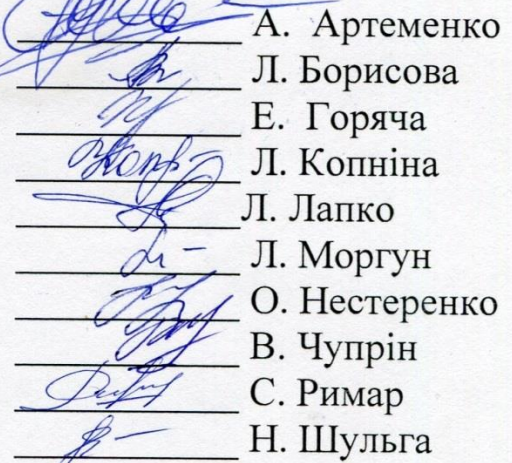 А. Артеменко
Л. Борисова
Е. Горяча
Л. Копніна
Л. Лапко
Л. Моргун
О. Нестеренко
В. Чупрін
С. Римар
Н. Шульга